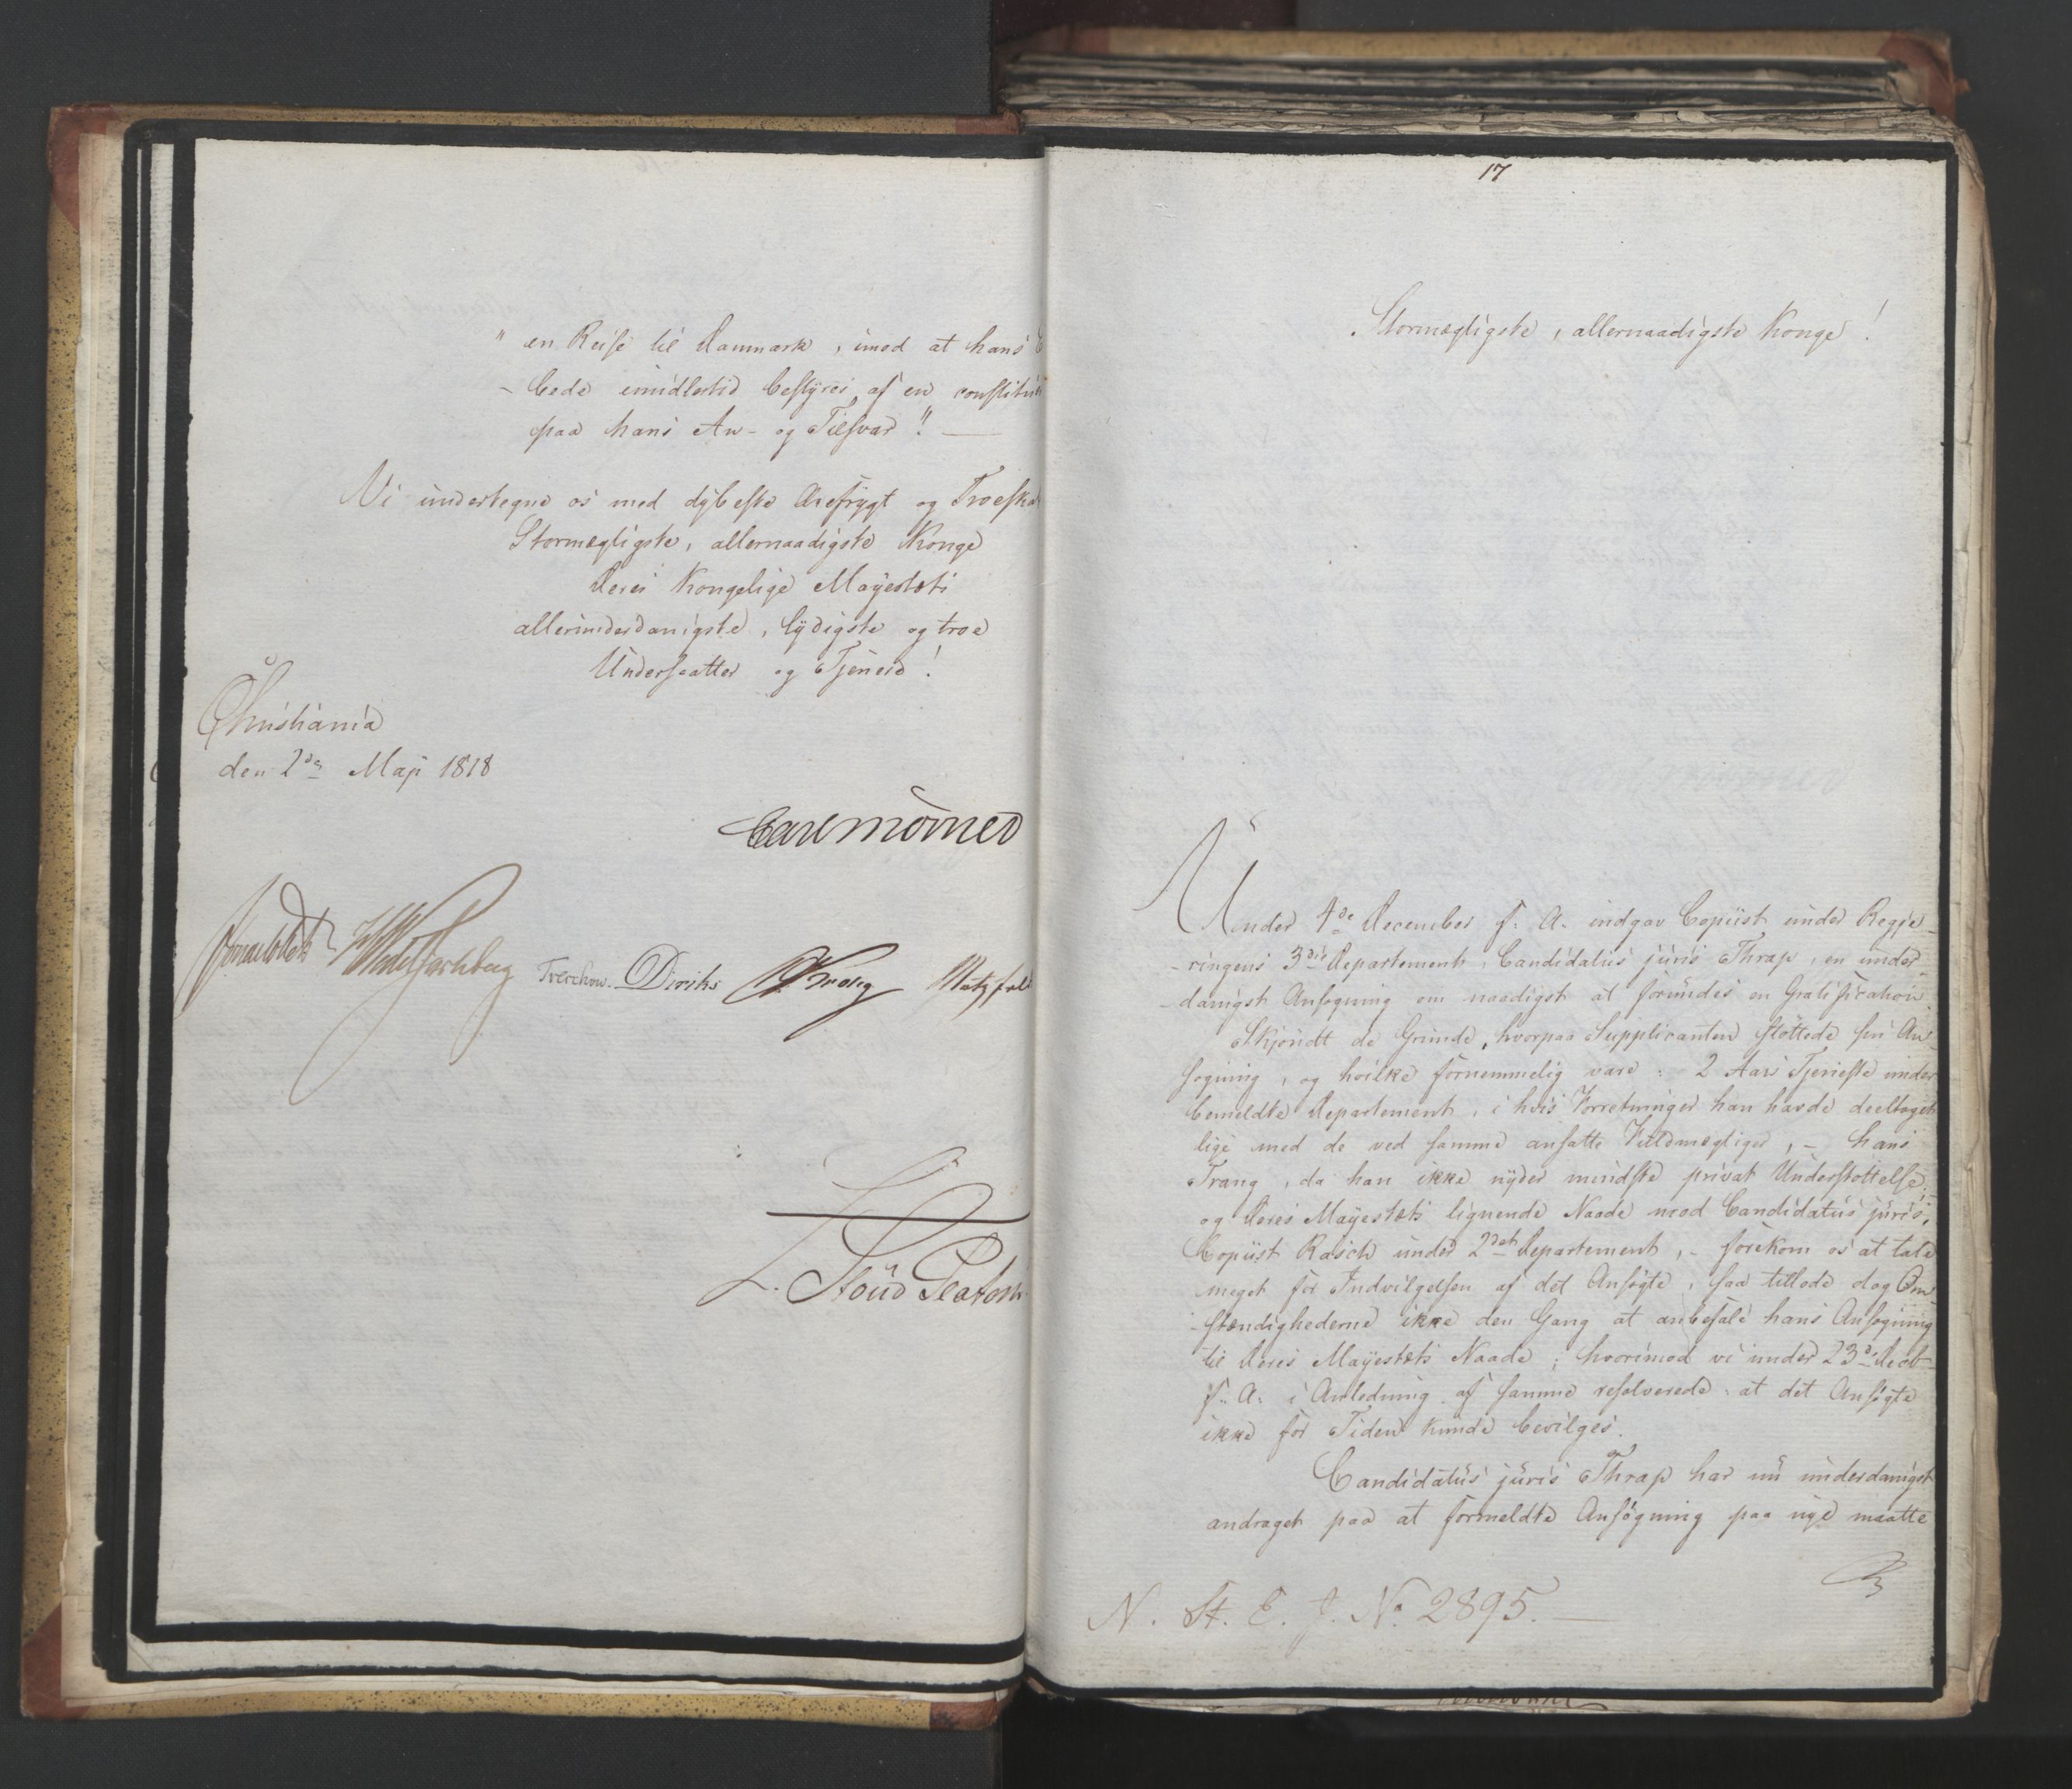 " en Reise til Danmark, imod at hans
- bede imidlertid bestyres af en constitue
paa hans An- og Tilsvar". —
Vi undertegne os med dybeste Ærefrygt og Troeska
Stormægtigste, allernaadigste Konge
Deres Kongelige Majestæts
allerunderdanigste, lydigste og troe
Undersaatter og Tjenere!
Christiania
den 2de Maji 1818
Carl Mörner
Sommerfeldt HWedelJarlsberg Treschow. Diriks Krog Motzfeldt
L. Stoud Platou
17
Stormægtigste, allernaadigste Konge!
Under 4de December f. A. indgav Copiist under Regje-
- ringens 3die Departement, Candidatus juris Thrap, en under-
- danigst Ansøgning om naadigst at forundes en Gratification.
Skjøndt de Grunde, hvorpaa Supplicanten støttede sin An-
søgning, og hvilke fornemmelig vare: 2 Aars Tjeneste under
bemeldte Departement, i hvis Forretninger han havde deeltaget
lige med de ved samme ansatte Fuldmægtiger, – hans
Trang, da han ikke nyder mindste privat Understøttelse,–
og Deres Majestæts lignende Naade mod Candidatus juris,
Copiist Rasch under 2det Departement, – forekom os at tale
meget for Indvilgelsen af det Ansøgte, saa tillode dog Om-
- stændighederne ikke den Gang at anbefale hans Ansøgning
til Deres Majestæts Naade; hvorimod vi under 23de Decb-
f. A. i Anledning af samme resolverede: at det Ansøgte
ikke for Tiden kunde bevilges.
Candidatus juris Thrap har nu underdanigst
andraget paa at formeldte Ansøgning paa nye maatte
N. St. E. J. No. 2895. —